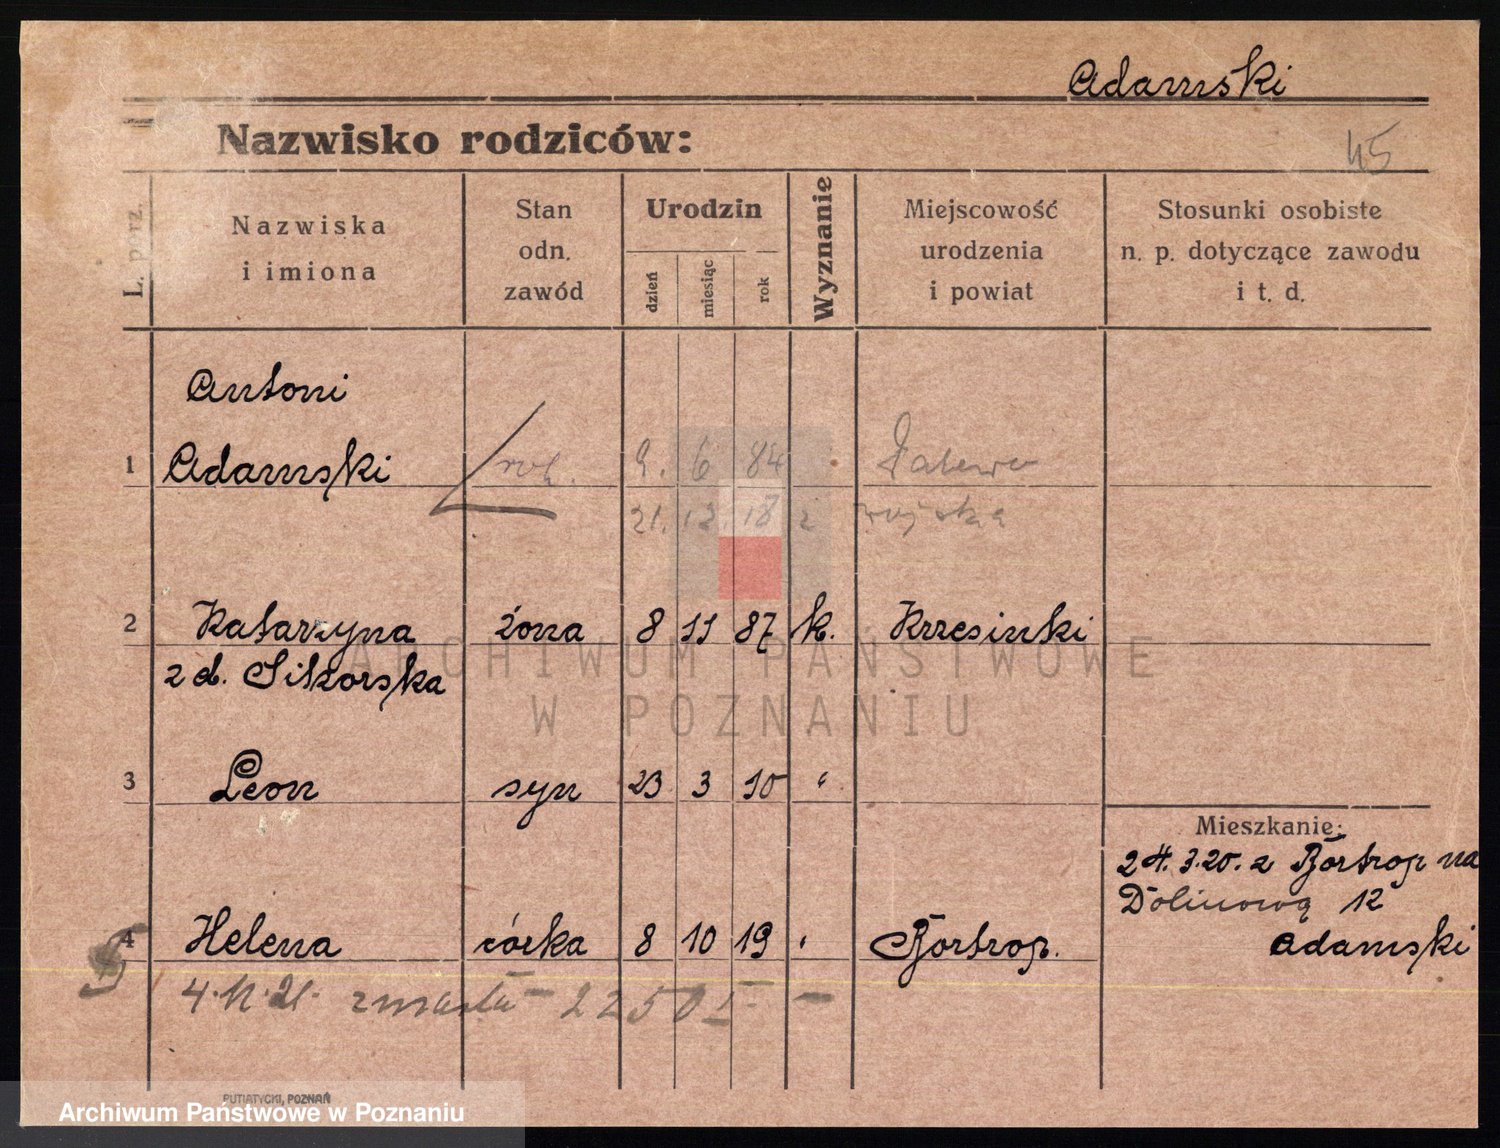 Adamski
Nazwisko rodziców:
45
L. porz.
Nazwiska
i imiona
Stan
odn.
zawód
Urodzin
dzień
miesiąc
rok
Wyznanie
Miejscowość
urodzenia
i powiat
Stosunki osobiste
n. p. dotyczące zawodu
i t. d.
Antoni
1 Adamski rob. 9. 6 84
21. 12. 18 z wojska
2 Katarzyna żona 8 11 87 k. Krzesinki
z d. Sikorska
3 Leon syn 23 3 10 "
Mieszkanie:
24.3.20. z Bortrop na
Dolinową 12
Adamski
4 Helena córka 8 10 19 " Bortrop.
4. 11. 21. zmarła - 2250 I - -
ARCHIWUM PAŃSTWOWE
W POZNANIU
PUTIATYCKI, POZNAŃ
Archiwum Państwowe w Poznaniu